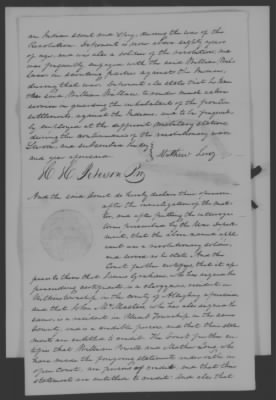 an Indian scout and Spy, during the war of the
Revolution Deponent is now above eighty years
of age, and was also a soldier of the revolution and
was frequently engaged with the said William
in scouting parties against the Indians,
during that war. Deponent also states that he knew
the said William to render much other
service in guarding the inhabitants of the frontier
settlements against the Indians, and to be frequent
ly employed at the different military stations
during the continuance of the revolutionary war
Sworn, and subscribed the day
and year aforesaid Matthew Long
H. H. Peterson
And the said Court do hereby declare their opinion
after the investigation of the mat-
ter, and after putting the interroga-
tories prescribed by the War Depart-
ment, that the above named appli-
cant was a revolutionary soldier,
and served as he states. And the
Court further certifies that it ap-
pears to them that James Graham who has signed the
preceding certificate is a clergyman resident in
township in the county of Allegheny aforesaid
and that John who has also signed the
same, is a resident in Plum Township in the same
County, and is a credible person and that their state-
ment are entitled to credit. The Court further cer-
tifies that William and Matthew Long, who
have made the foregoing statements under oath in
open Court, are persons of credit, and that their
statements are entitled to credit. And also that